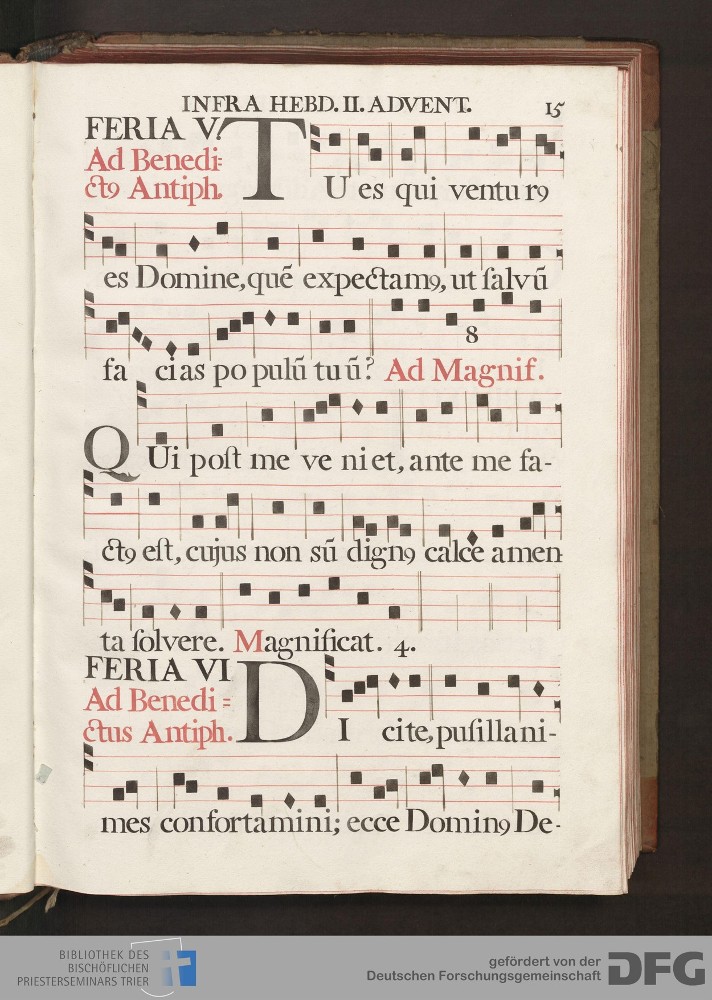 INFRA HEBD. II. ADVENT. 15
FERIA V.
Ad Benedi=
ct9 Antiph.
TU es qui ventur9
es Domine, quē expectam9, ut ſalvū
8
facias populū tuū? Ad Magnif.
QUi poſt me veniet, ante me fa-
ct9 eſt, cujus non sū dign9 calce amen
ta ſolvere. Magnificat. 4.
FERIA VI
Ad Benedi=
ctus Antiph.
DIcite, puſillani-
mes confortamini; ecce Domin9 De-
BIBLIOTHEK DES
BISCHÖFLICHEN
PRIESTERSEMINARS TRIER
gefördert von der
Deutschen Forschungsgemeinschaft
DFG